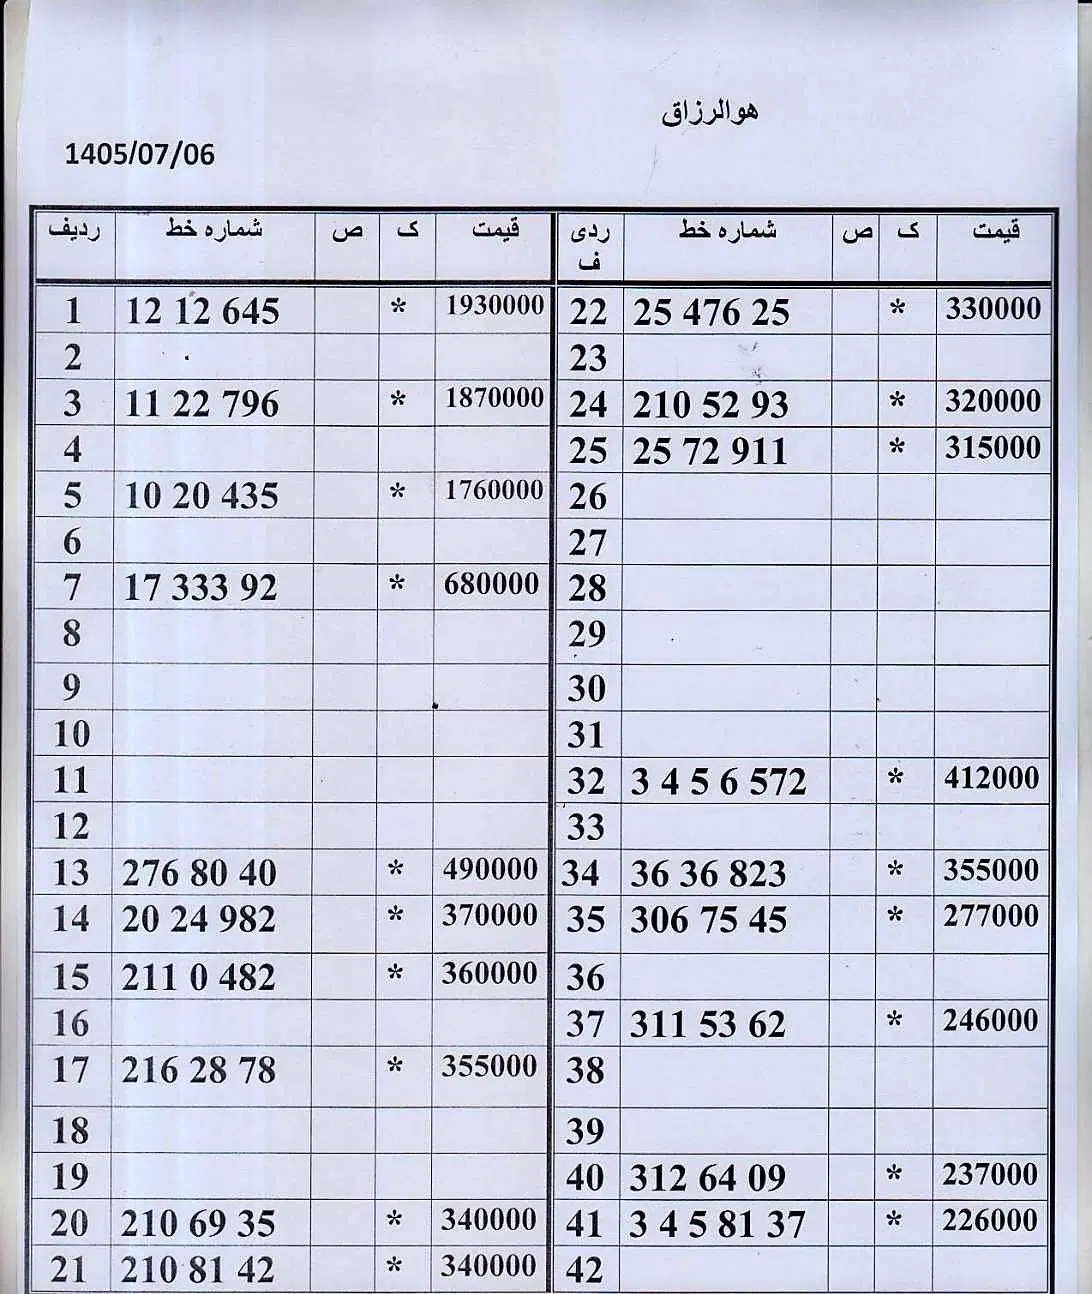 هوالرزاق
1405/07/06
ردیف شماره خط ص ک قیمت ردی ف شماره خط ص ک قیمت
1 12 12 645 * 1930000 22 25 476 25 * 330000
2 23
3 11 22 796 * 1870000 24 210 52 93 * 320000
4 25 25 72 911 * 315000
5 10 20 435 * 1760000 26
6 27
7 17 333 92 * 680000 28
8 29
9 30
10 31
11 32 3 4 5 6 572 * 412000
12 33
13 276 80 40 * 490000 34 36 36 823 * 355000
14 20 24 982 * 370000 35 306 75 45 * 277000
15 211 0 482 * 360000 36
16 37 311 53 62 * 246000
17 216 28 78 * 355000 38
18 39
19 40 312 64 09 * 237000
20 210 69 35 * 340000 41 3 4 5 81 37 * 226000
21 210 81 42 * 340000 42